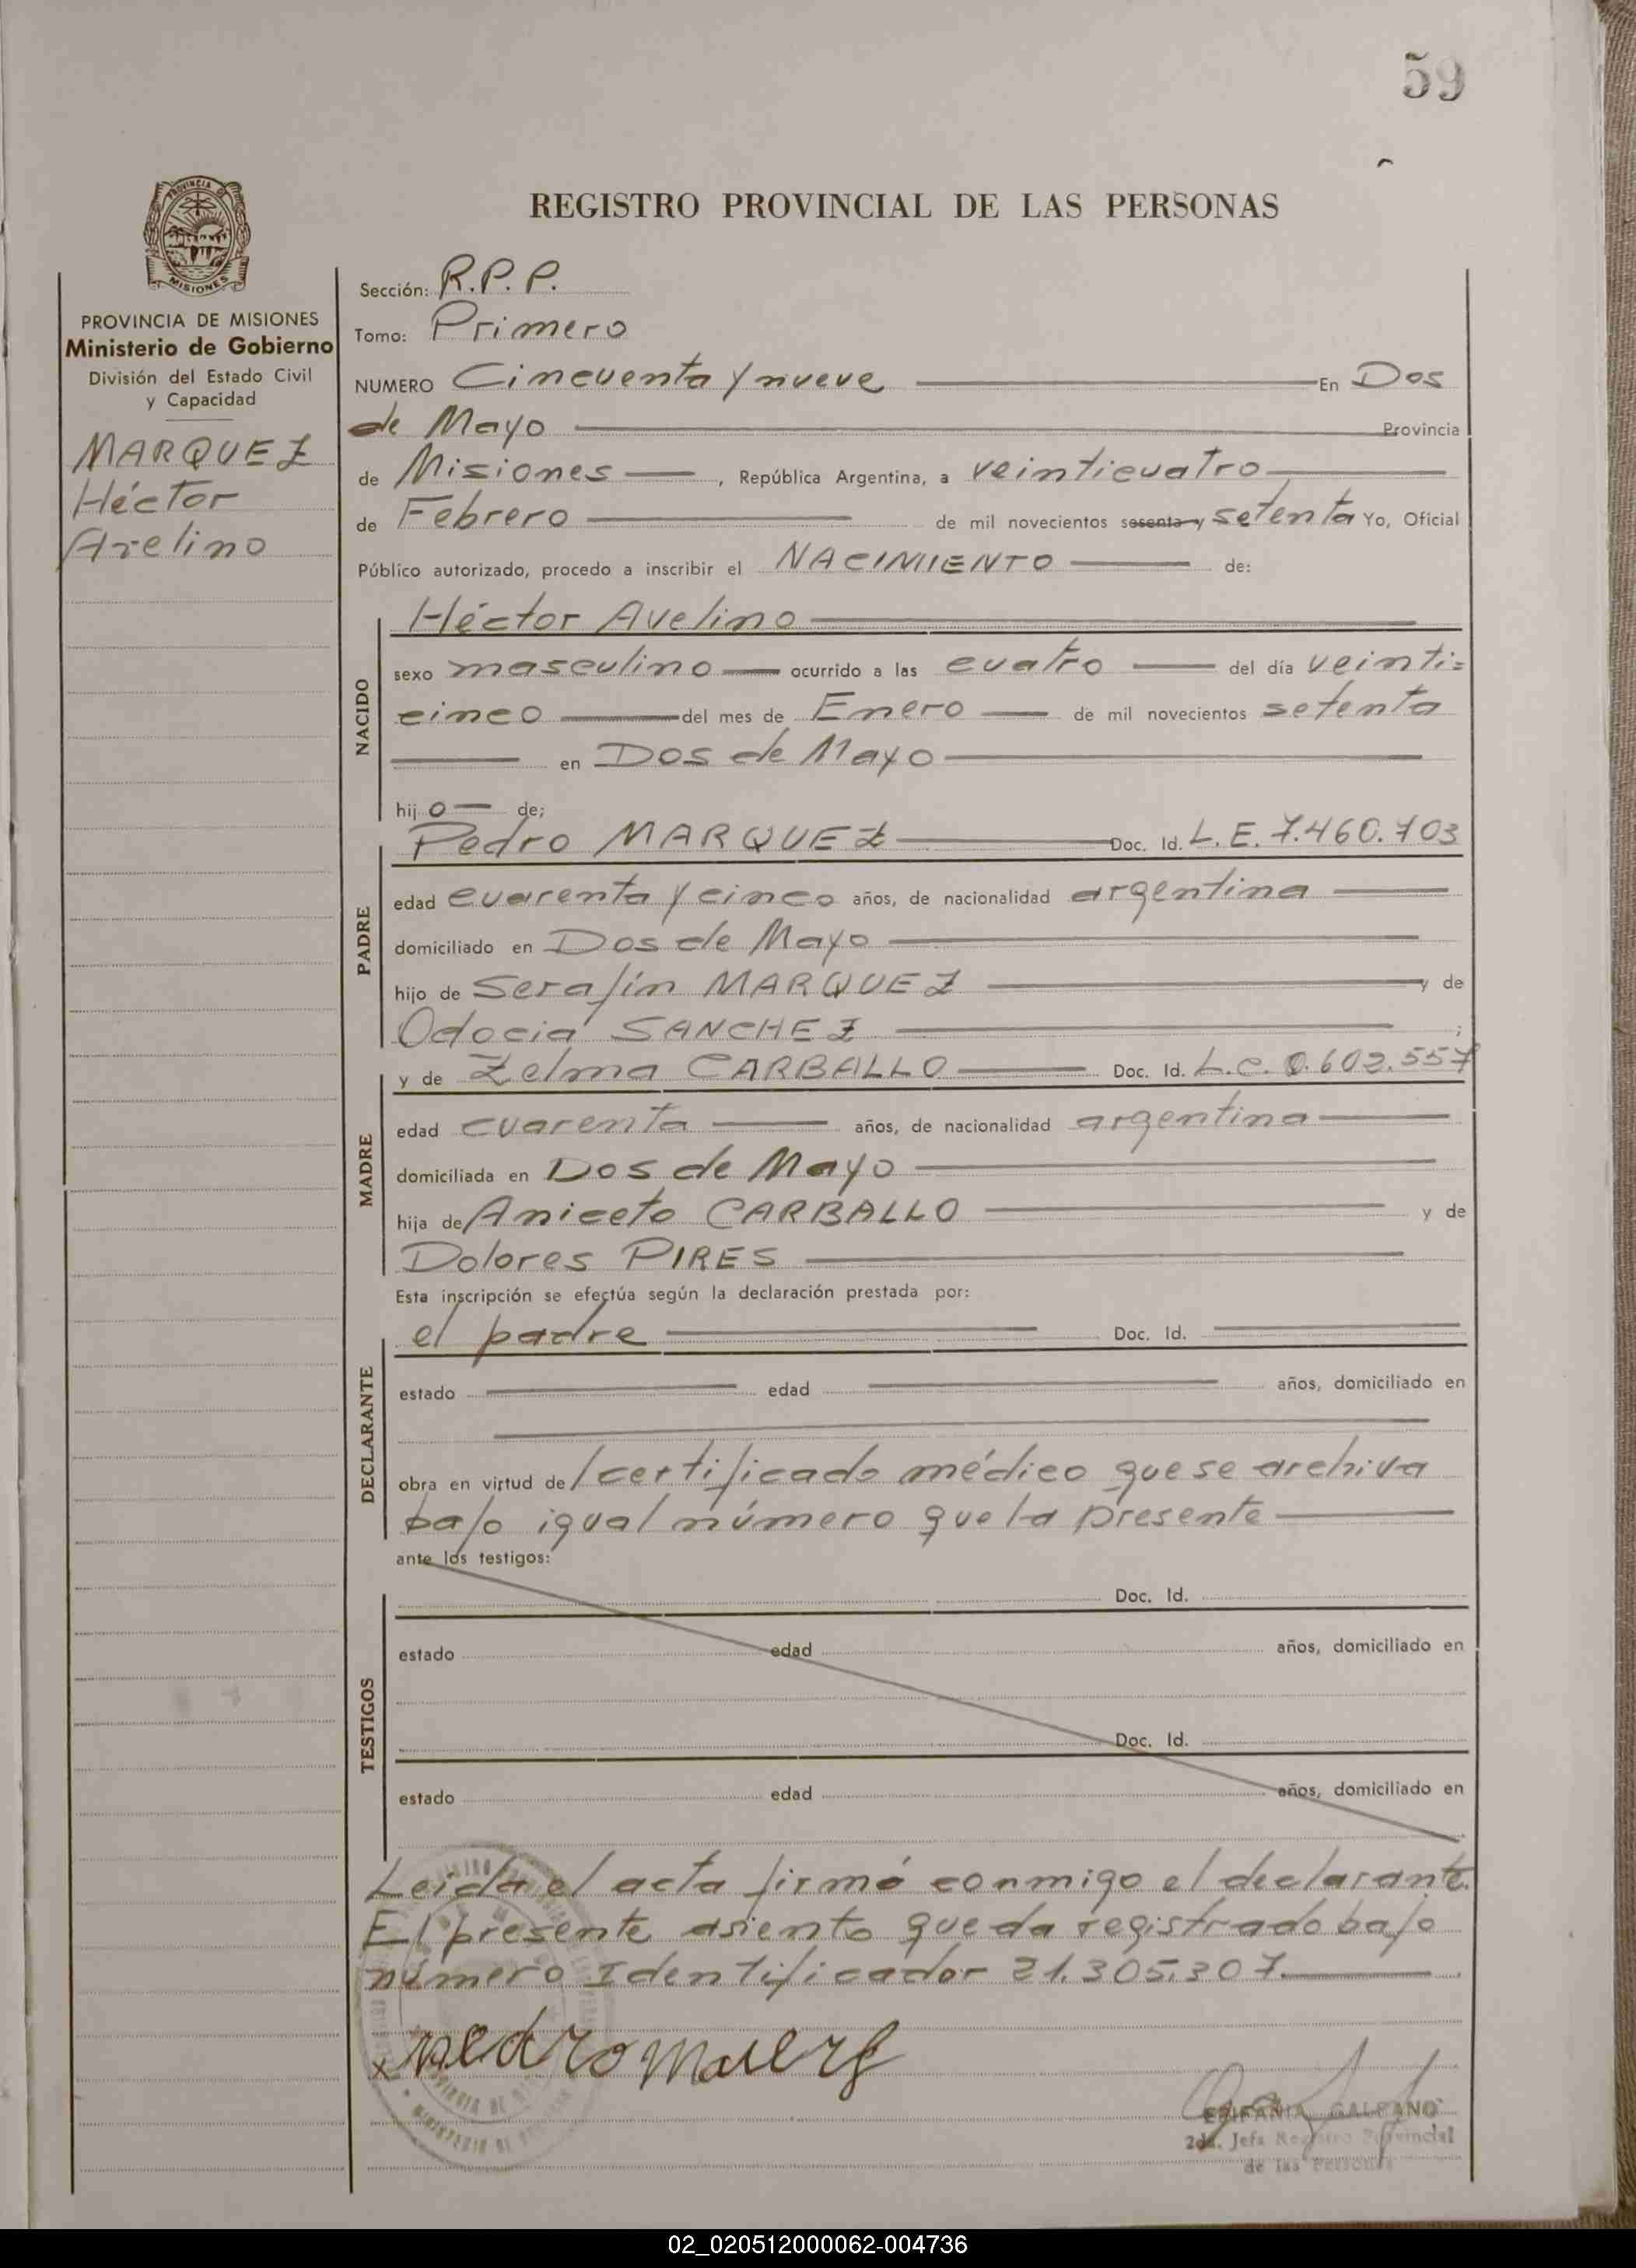 59
REGISTRO PROVINCIAL DE LAS PERSONAS
MISIONES
PROVINCIA DE MISIONES
Ministerio de Gobierno
División del Estado Civil
y Capacidad
MARQUEZ
Héctor
Avelino
Sección: R.P.P.
Tomo: Primero
NUMERO Cincuenta y nueve En Dos
de Mayo Provincia
de Misiones, República Argentina, a veinticuatro
de Febrero de mil novecientos sesenta y setenta Yo, Oficial
Público autorizado, procedo a inscribir el NACIMIENTO de:
NACIDO
Héctor Avelino
sexo masculino ocurrido a las cuatro del día veinti=
cinco del mes de Enero de mil novecientos setenta
en Dos de Mayo
hijo de;
PADRE
Pedro MARQUEZ Doc. Id. L.E. 7.460.703
edad cuarenta y cinco años, de nacionalidad argentina
domiciliado en Dos de Mayo
hijo de Serafín MARQUEZ y de
Odocia SANCHEZ ;
MADRE
y de Zelma CARBALLO Doc. Id. L.C. 0.602.557
edad cuarenta años, de nacionalidad argentina
domiciliada en Dos de Mayo
hija de Aniceto CARBALLO y de
Dolores PIRES
Esta inscripción se efectúa según la declaración prestada por:
DECLARANTE
el padre Doc. Id.
estado edad años, domiciliado en
obra en virtud de/certificado médico que se archiva
bajo igual número que la presente
ante los testigos:
TESTIGOS
Doc. Id.
estado edad años, domiciliado en
Doc. Id.
estado edad años, domiciliado en
Leida el acta firmó conmigo el declarante.
El presente asiento queda registrado bajo
número Identificador 21.305.307.
x pedro
EPIFANIA GALEANO
2da. Jefa Registro Provincial
de las Personas
02_020512000062-004736